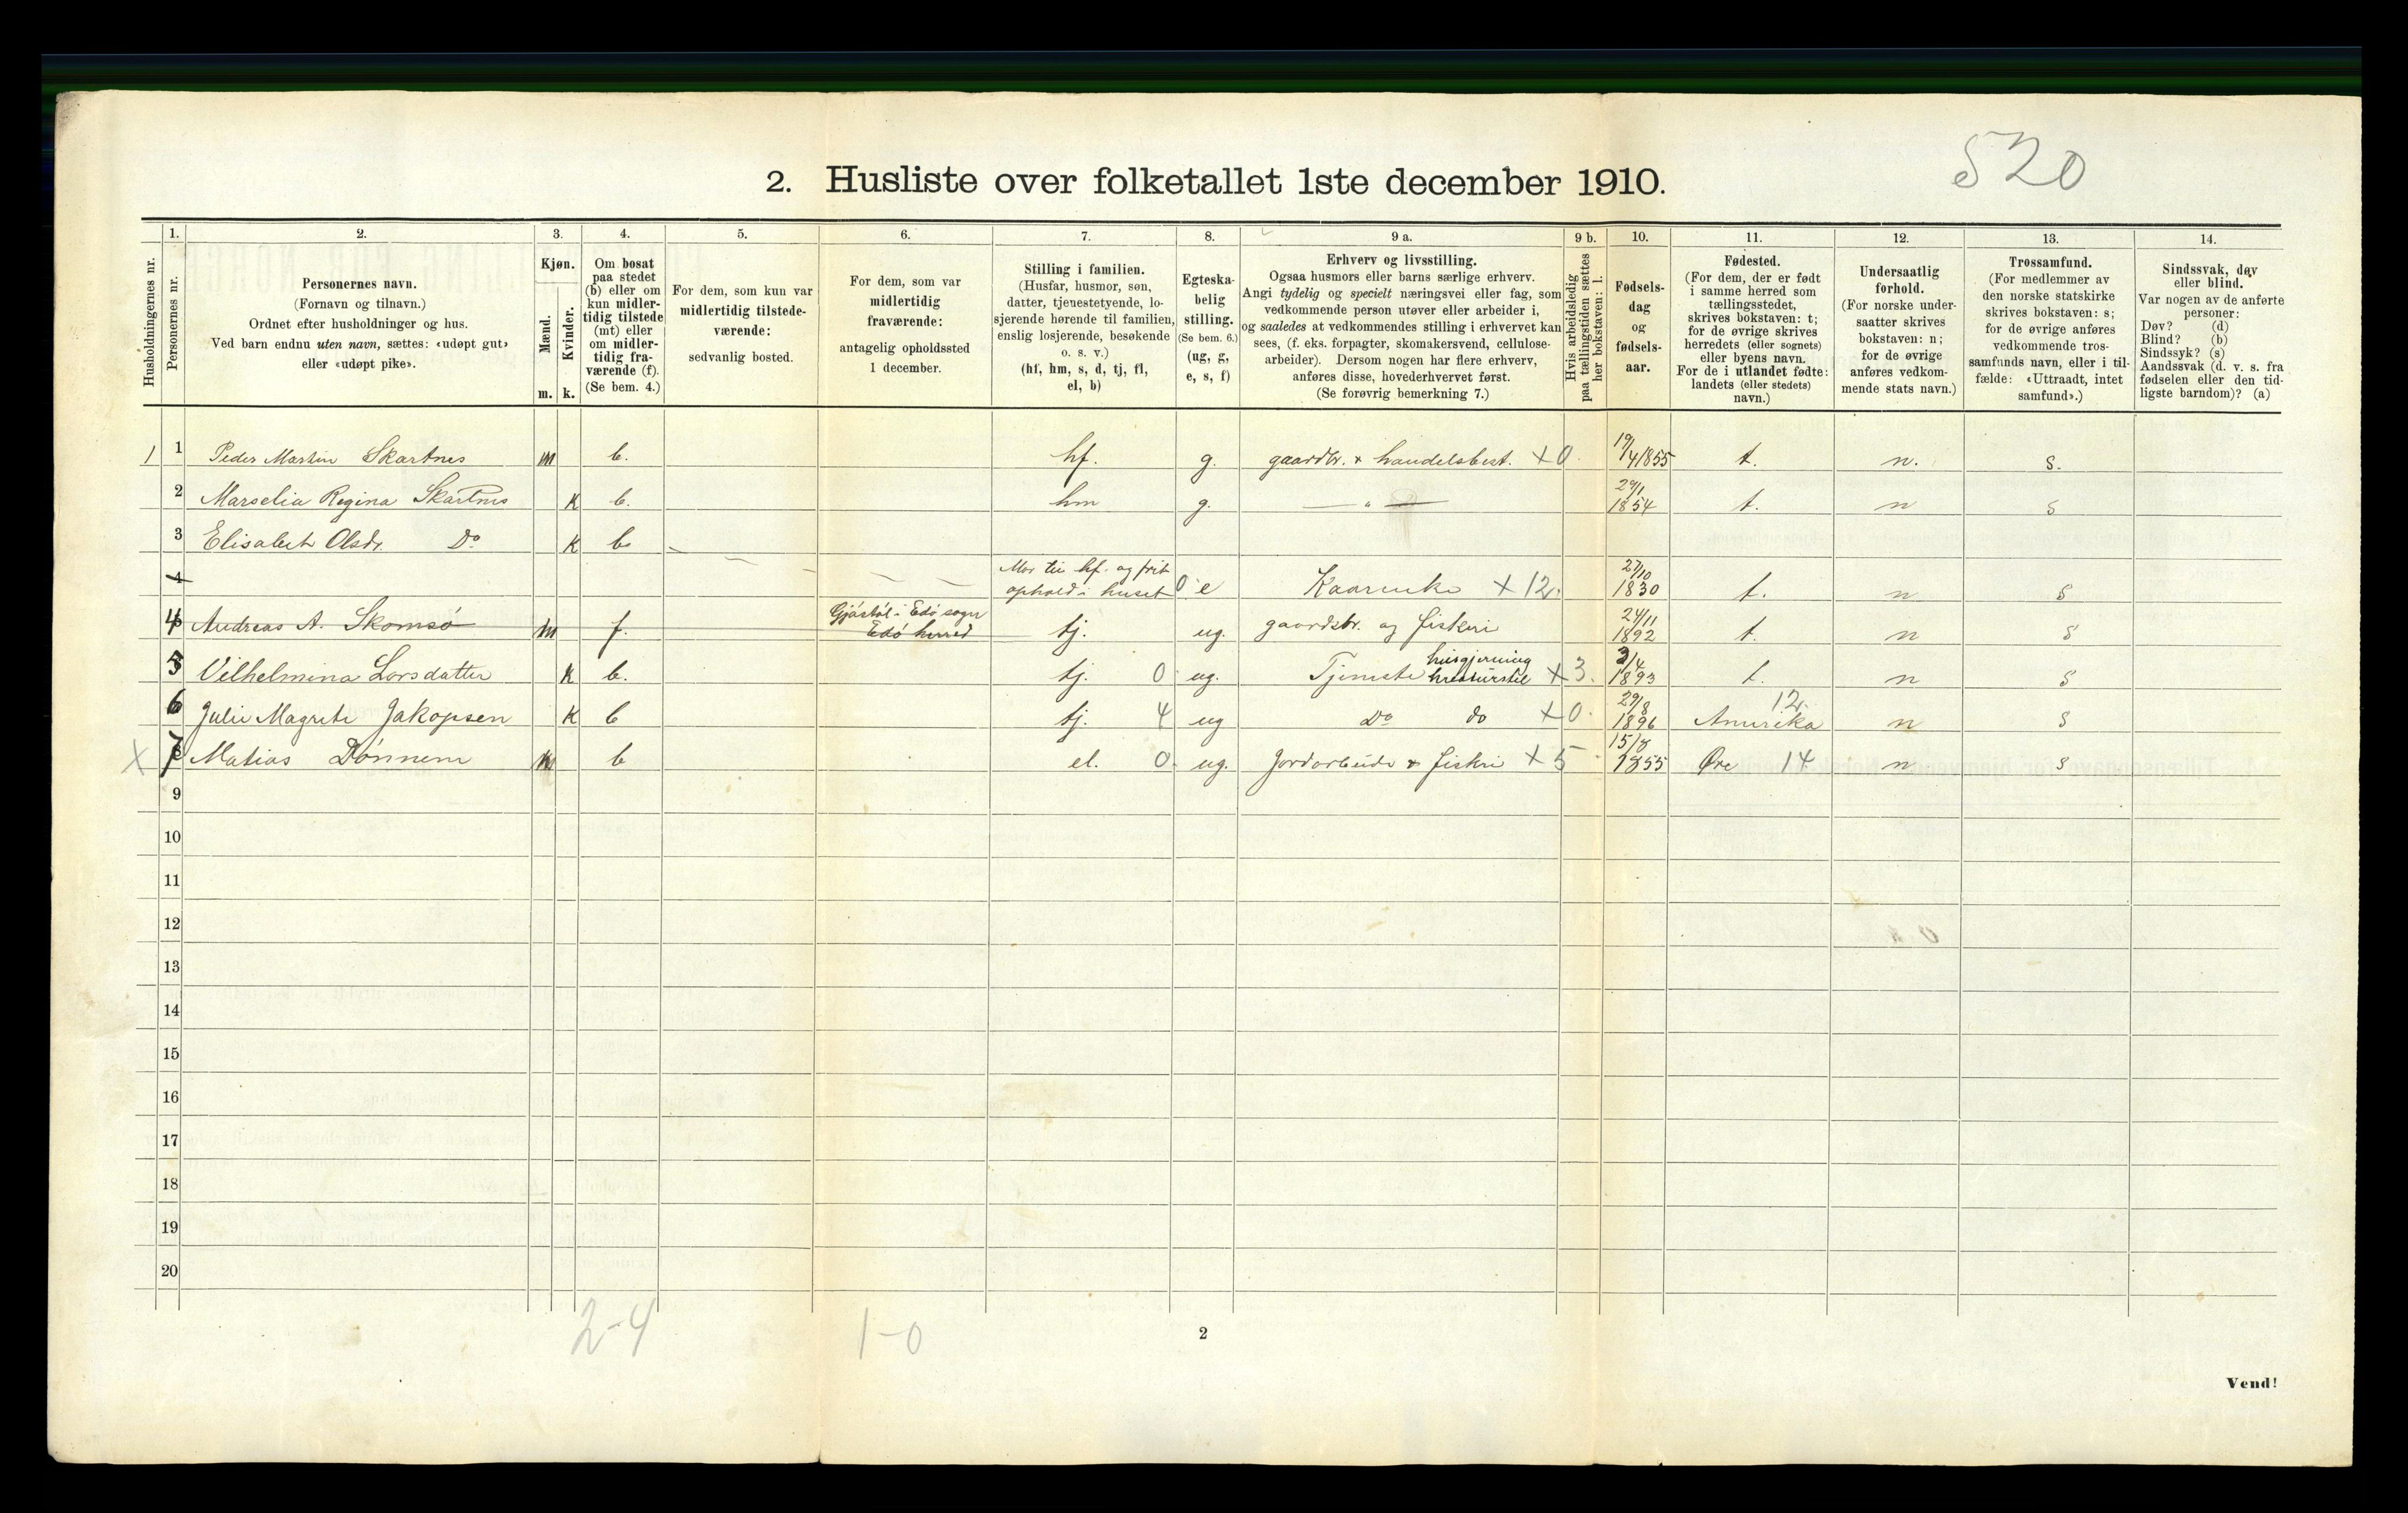 520
2. Husliste over folketallet 1ste december 1910.
Husholdningernes nr.
1.
Personernes nr.
2.
Personernes navn.
(Fornavn og tilnavn.)
Ordnet efter husholdninger og hus.
Ved barn endnu uten navn, sættes: «udøpt gut»
eller «udøpt pike».
3.
Kjøn.
Mænd.
Kvinder.
m. k.
4.
Om bosat
paa stedet
(b) eller om
kun midler-
tidig tilstede
(mt) eller
om midler-
tidig fra-
værende (f).
(Se bem. 4.)
5.
For dem, som kun var
midlertidig tilstede-
værende:
sedvanlig bosted.
6.
For dem, som var
midlertidig
fraværende:
antagelig opholdssted
1 december.
7.
Stilling i familien.
(Husfar, husmor, søn,
datter, tjenestetyende, lo-
sjerende hørende til familien,
enslig losjerende, besøkende
o. s. v.)
(hf, hm, s, d, tj, fl,
el, b)
8.
Egteska-
belig
stilling.
(Se bem. 6.)
(ug, g,
e, s, f)
9 a.
Erhverv og livsstilling.
Ogsaa husmors eller barns særlige erhverv.
Angi tydelig og specielt næringsvei eller fag, som
vedkommende person utøver eller arbeider i,
og saaledes at vedkommendes stilling i erhvervet kan
sees, (f. eks. forpagter, skomakersvend, cellulose-
arbeider). Dersom nogen har flere erhverv,
anføres disse, hovederhvervet først.
(Se forøvrig bemerkning 7.)
9 b.
Hvis arbeidsledig
paa tællingstiden sættes
her bokstaven: l.
10.
Fødsels-
dag
og
fødsels-
aar.
11.
Fødested.
(For dem, der er født
i samme herred som
tællingsstedet,
skrives bokstaven: t;
for de øvrige skrives
herredets (eller sognets)
eller byens navn.
For de i utlandet fødte:
landets (eller stedets)
navn.)
12.
Undersaatlig
forhold.
(For norske under-
saatter skrives
bokstaven: n;
for de øvrige
anføres vedkom-
mende stats navn.)
13.
Trossamfund.
(For medlemmer av
den norske statskirke
skrives bokstaven: s;
for de øvrige anføres
vedkommende tros-
samfunds navn, eller i til-
fælde: «Uttraadt, intet
samfund».)
14.
Sindssvak, døv
eller blind.
Var nogen av de anførte
personer:
Døv? (d)
Blind? (b)
Sindssyk? (s)
Aandssvak (d. v. s. fra
fødselen eller den tid-
ligste barndom)? (a)
1 1 Peder Martin Skartnes m b. hf. g. gaardbr. & handelsbest. X 0. 19/4 1855 t. n. s.
2 Marselia Regina Skartnes k b. hm g. — " — 29/1 1854 t. n s
3 Elisabet Olsdr. Do k b
4 Mor til hf. og frit
ophold i huset 0 e Kaarenke X 12. 27/10 1830 t. n s
4 Andreas A. Skomsø m f. Gjøstøl i Edø sogn
Edø herred tj. ug. gaardsbr. og fiskeri 24/11 1892 t. n s
5 Vilhelmina Larsdatter k b. tj. 0 ug. Tjeneste husgjerning
kreaturstel X 3. 3/4 1893 t. n s
6 Julie Magrete Jakopsen k b tj. 4 ug Do do X 0. 29/8 1896 Amerika 12. n s
X 7 Matias Dønnem m b el. 0. ug. Jordarbeide & fiskeri X 5 15/8 1855 Øre 14 n s
9
10
11
12
13
14
15
16
17
18
19
20
2-4
1-0
2
Vend!